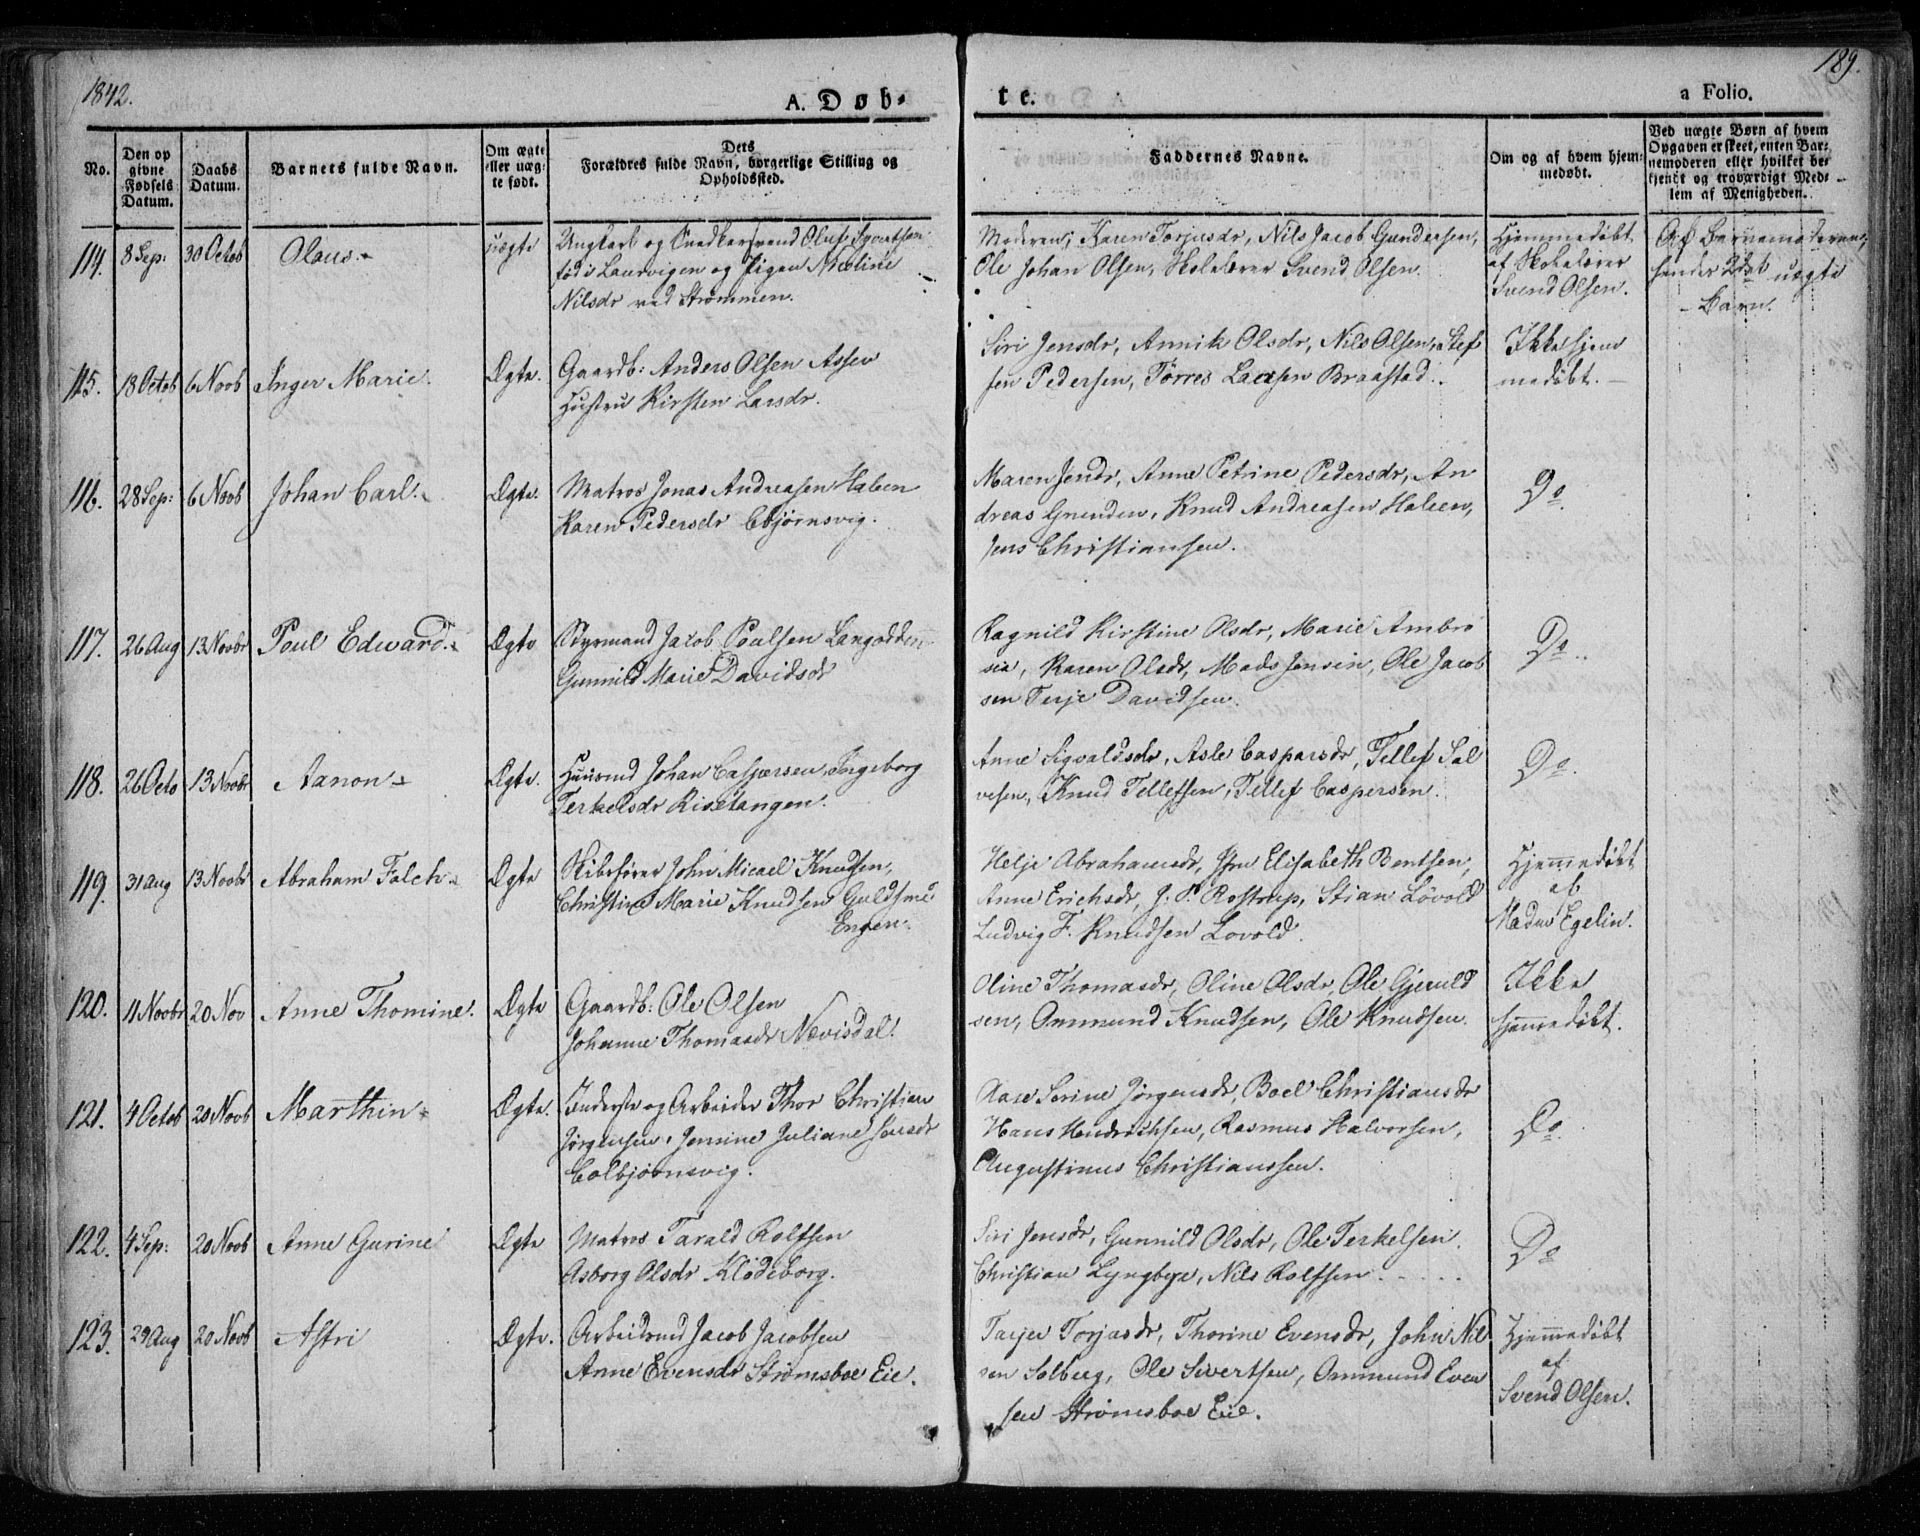 1842.
189.
A. Døb-
te.
a Folio.
No.
Den op
givne
Fødsels
Datum.
Daabs
Datum.
Barnets fulde Navn.
Om ægte
eller uæg-
te født.
Dets
Forældres fulde Navn, borgerlige Stilling og
Opholdssted.
Faddernes Navne.
Om og af hvem hjem-
medøbt.
Ved uægte Børn af hvem
Opgaven er skeet, enten Bar-
nemoderen eller hvilket be-
kjendt og troværdigt Med-
lem af Menigheden.
114. 8 Sep: 30 Octob Olaus uægte Ungkarl og Snedkersvend Oluf Syvertsen
fød i Laurvigen og Pigen Nicoline
Nilsdr ved Strømmen.
Moderen, Karen Torjusdr, Nils Jacob Gundersen,
Ole Johan Olsen, Skolelærer Svend Olsen.
Hjemmedøbt
af Skolelærer
Svend Olsen.
Af Barnemoderen,
hendes 2det uægte
Barn.
115. 18 Octob 6 Novb Inger Marie. Ægte. Gaardb: Anders Olsen Assev
Hustru Kirsten Larsdr.
Siri Jensdr, Annik Olsdr, Nils Olsen, Stef
fen Pedersen, Tørres Larsen Braastad.
Ikke hjem
medøbt.
116. 28 Sep: 6 Novb Johan Carl. Ægte. Matros Jonas Andreasen Haleen
Karen Pedersdr Cbjørnsvig.
Maren Jensdr, Anne Petrine Pedersdr, An
dreas Gnenden, Knud Andreasen Haleen,
Jens Christiansen.
Do.
117. 26 Aug 13 Novbr Poul Edward. Ægte Styrmand Jacob Poulsen Langodden
Gunnild Marie Davidsdr
Ragnild Kirstine Olsdr, Marie Ambro
sia, Karen Olsdr, Mads Jensen, Ole Jacob
sen Terje Davidsen.
Do.
118. 26 Octo 13 Novbr Aanon Ægte. Huusmd Johan Caspersen, Ingeborg
Terkelsdr Risetangen.
Anne Sigvaldsdr, Asle Caspersdr, Tellef Sal
vesen, Knud Tellefsen, Tellef Caspersen.
Do.
119. 31 Aug 13 Novbr Abraham Falch Ægte Skibsfører John Micael Knudsen,
Christine Marie Knudsen Guldsme
Engen.
Helje Abrahamsdr, Elisabeth Bentsen,
Anne Erichsdr, J. P. Rostrup, Stian Lövold
Ludvig F. Knudsen Lovold.
Hjemmedøbt
af
Madm Egelin.
120. 11 Novbr 20 Nov Anne Thomine. Ægte Gaardb: Ole Olsen
Johanne Thomasdr Nævisdal.
Oline Thomasdr, Oline Olsdr, Ole Gjeruld
sen, Ommund Knudsen, Ole Knudsen.
Ikke
hjemmedøbt.
121. 4 Octob 20 Novb Marthin Ægte. Inderste og Arbeider Thor Christian
Jørgensen, Jensine Juliane Jensdr
Colbjørnsvig.
Aase Serine Jørgensdr, Boel Christiansdr
Hans Hendrichsen, Rasmus Halvorsen,
Augustinus Christianssen.
Do.
122. 4 Sep: 20 Novb Anne Gurine Ægte Matros Tarald Rolfsen
Asborg Olsdr Klødeborg.
Siri Jensdr, Gunnild Olsdr, Ole Terkelsen.
Christian Lyngbye, Nils Rolfsen.
Do
123. 29 Aug 20 Novb Astri Ægte. Arbeidsmd Jacob Jacobsen
Anne Evensdr Strømsboe Eie.
Tarjer Torjasdr, Thorine Evensdr, John Nil
sen Solberg, Ole Sivertsen, Ommund Even
sen Strømsboe Eie.
Hjemmedøbt
af
Svend Olsen.